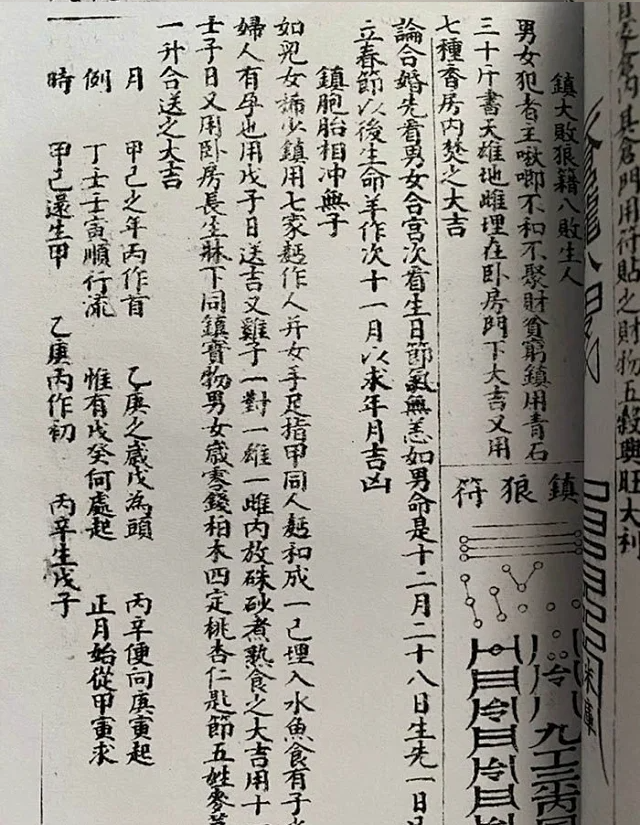 日辛倉內具倉門用符貼之財物五穀興旺大利
米庫
鎮大敗狼籍八敗生人
男女犯者主啾唧不和不聚財貧窮鎮用青石
三十斤書天雄地雌埋在卧房門下大吉又用
七種香房內焚之大吉
鎮狼符
論合婚先看男女合宮次看生日節氣無恙如男命是十二月二十八日生先一日
立春節以後生命羊作次十一月以求年月吉凶
鎮胞胎相冲無子
如兒女稀少鎮用七家麫作人并女手足指甲同人麫和成一己埋入水魚食有子
婦人有孕也用戊子日送吉又雞子一對一雄一雌內放硃砂煮熟食之大吉用十
壬子日又用卧房長生牀下同鎮寶物男女歲零錢柏木四定桃杏仁是節五姓麥
一升合送之大吉
月 甲己之年丙作首 乙庚之歲戊為頭 丙辛便向庚寅起
例 丁壬壬寅順行流 惟有戊癸何處起 正月始從甲寅求
時 甲己還生甲 乙庚丙作初 丙辛生戊子